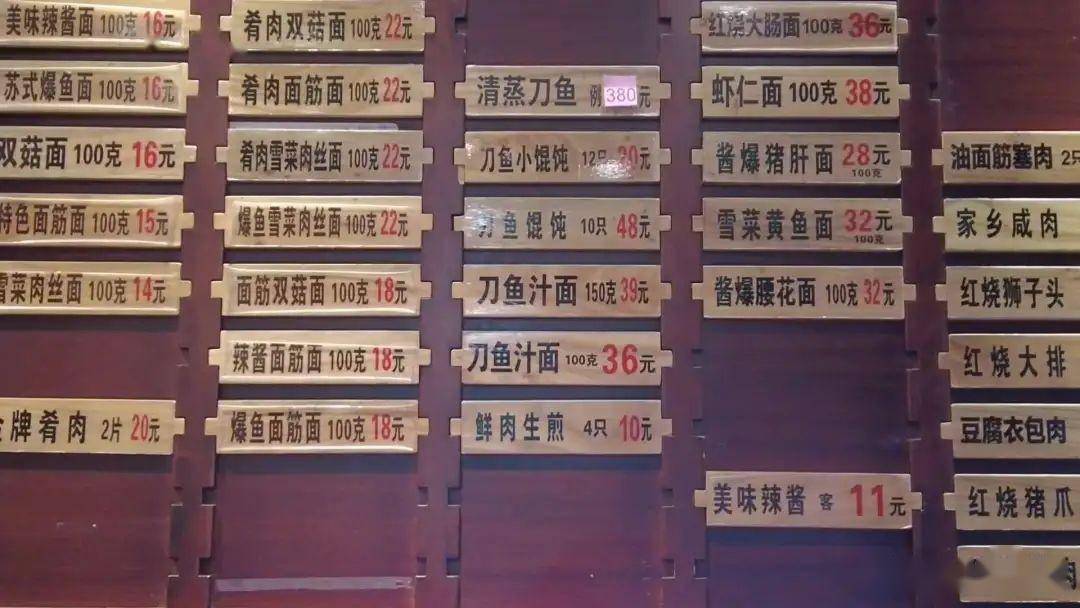 美味辣酱面 100克 16元
苏式爆鱼面 100克 16元
双菇面 100克 16元
特色面筋面 100克 15元
雪菜肉丝面 100克 14元
牌肴肉 2片 20元
肴肉双菇面 100克 22元
肴肉面筋面 100克 22元
肴肉雪菜肉丝面 100克 22元
爆鱼雪菜肉丝面 100克 22元
面筋双菇面 100克 18元
辣酱面筋面 100克 18元
爆鱼面筋面 100克 18元
清蒸刀鱼 例 380元
刀鱼小馄饨 12只 30元
刀鱼馄饨 10只 48元
刀鱼汁面 150克 39元
刀鱼汁面 100克 36元
鲜肉生煎 4只 10元
红烧大肠面 100克 36元
虾仁面 100克 38元
酱爆猪肝面 28元 100克
雪菜黄鱼面 32元 100克
酱爆腰花面 100克 32元
美味辣酱 客 11元
油面筋塞肉 2只
家乡咸肉
红烧狮子头
红烧大排
豆腐衣包肉
红烧猪爪
肉